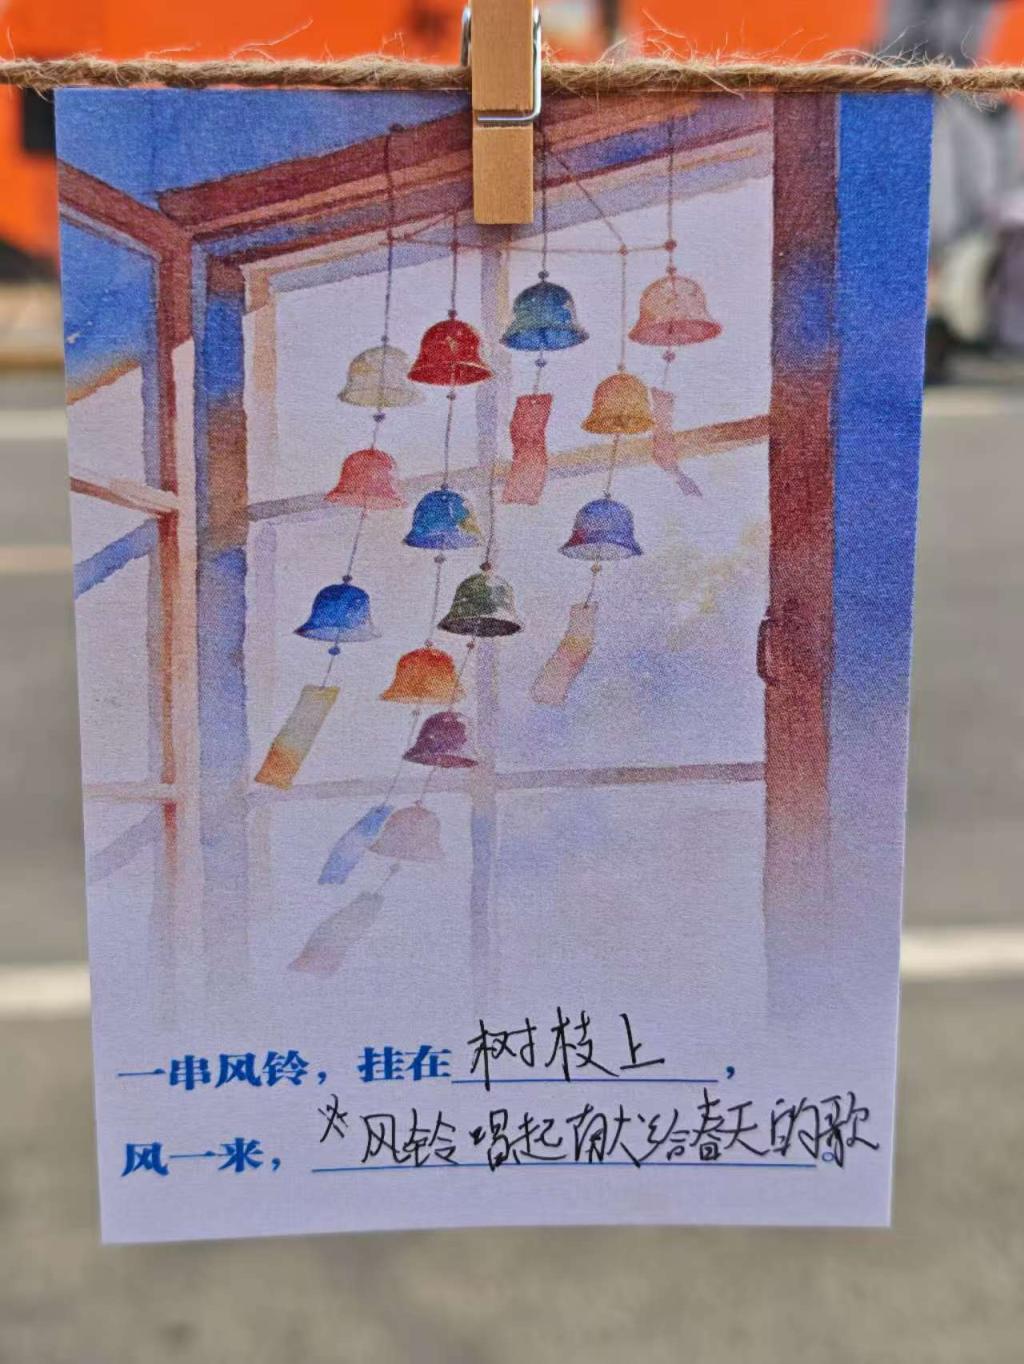 一串风铃，挂在树枝上，
风一来，风铃唱起献给春天的歌。